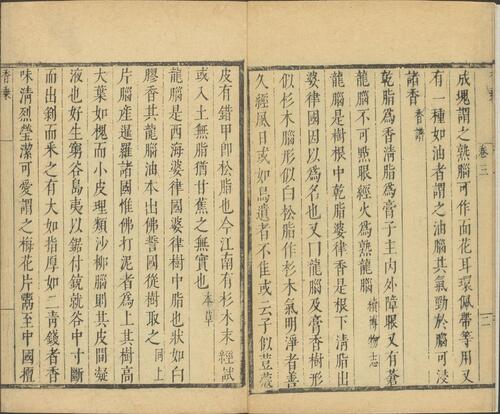 成塊謂之熟腦可作面花耳環佩帶等用又
有一種如油者謂之油腦其氣勁於腦可浸
諸香 香譜
乾脂爲香清脂爲膏子主內外障眼又有蒼
龍腦不可點眼經火爲熟龍腦 續博物志
龍腦是樹根中乾脂婆律香是根下清脂出
婆律國因以爲名也又曰龍腦及膏香樹形
似杉木腦形似白松脂作杉木氣明淨者善
久經風日或如鳥遺者不佳或云子似荳蔲
卷三
二
皮有錯甲即松脂也今江南有杉木末經試
或入土無脂猶甘蕉之無實也 本草
龍腦是西海婆律國婆律樹中脂也狀如白
膠香其龍腦油本出佛誓國從樹取之 同上
片腦產暹羅諸國惟佛打泥者爲上其樹高
大葉如槐而小皮理類沙柳腦則其皮間凝
液也好生窮谷島夷以鋸付銃就谷中寸斷
而出剝而采之有大如指厚如二青錢者香
味清烈瑩潔可愛謂之梅花片鬻至中國擅
香乘